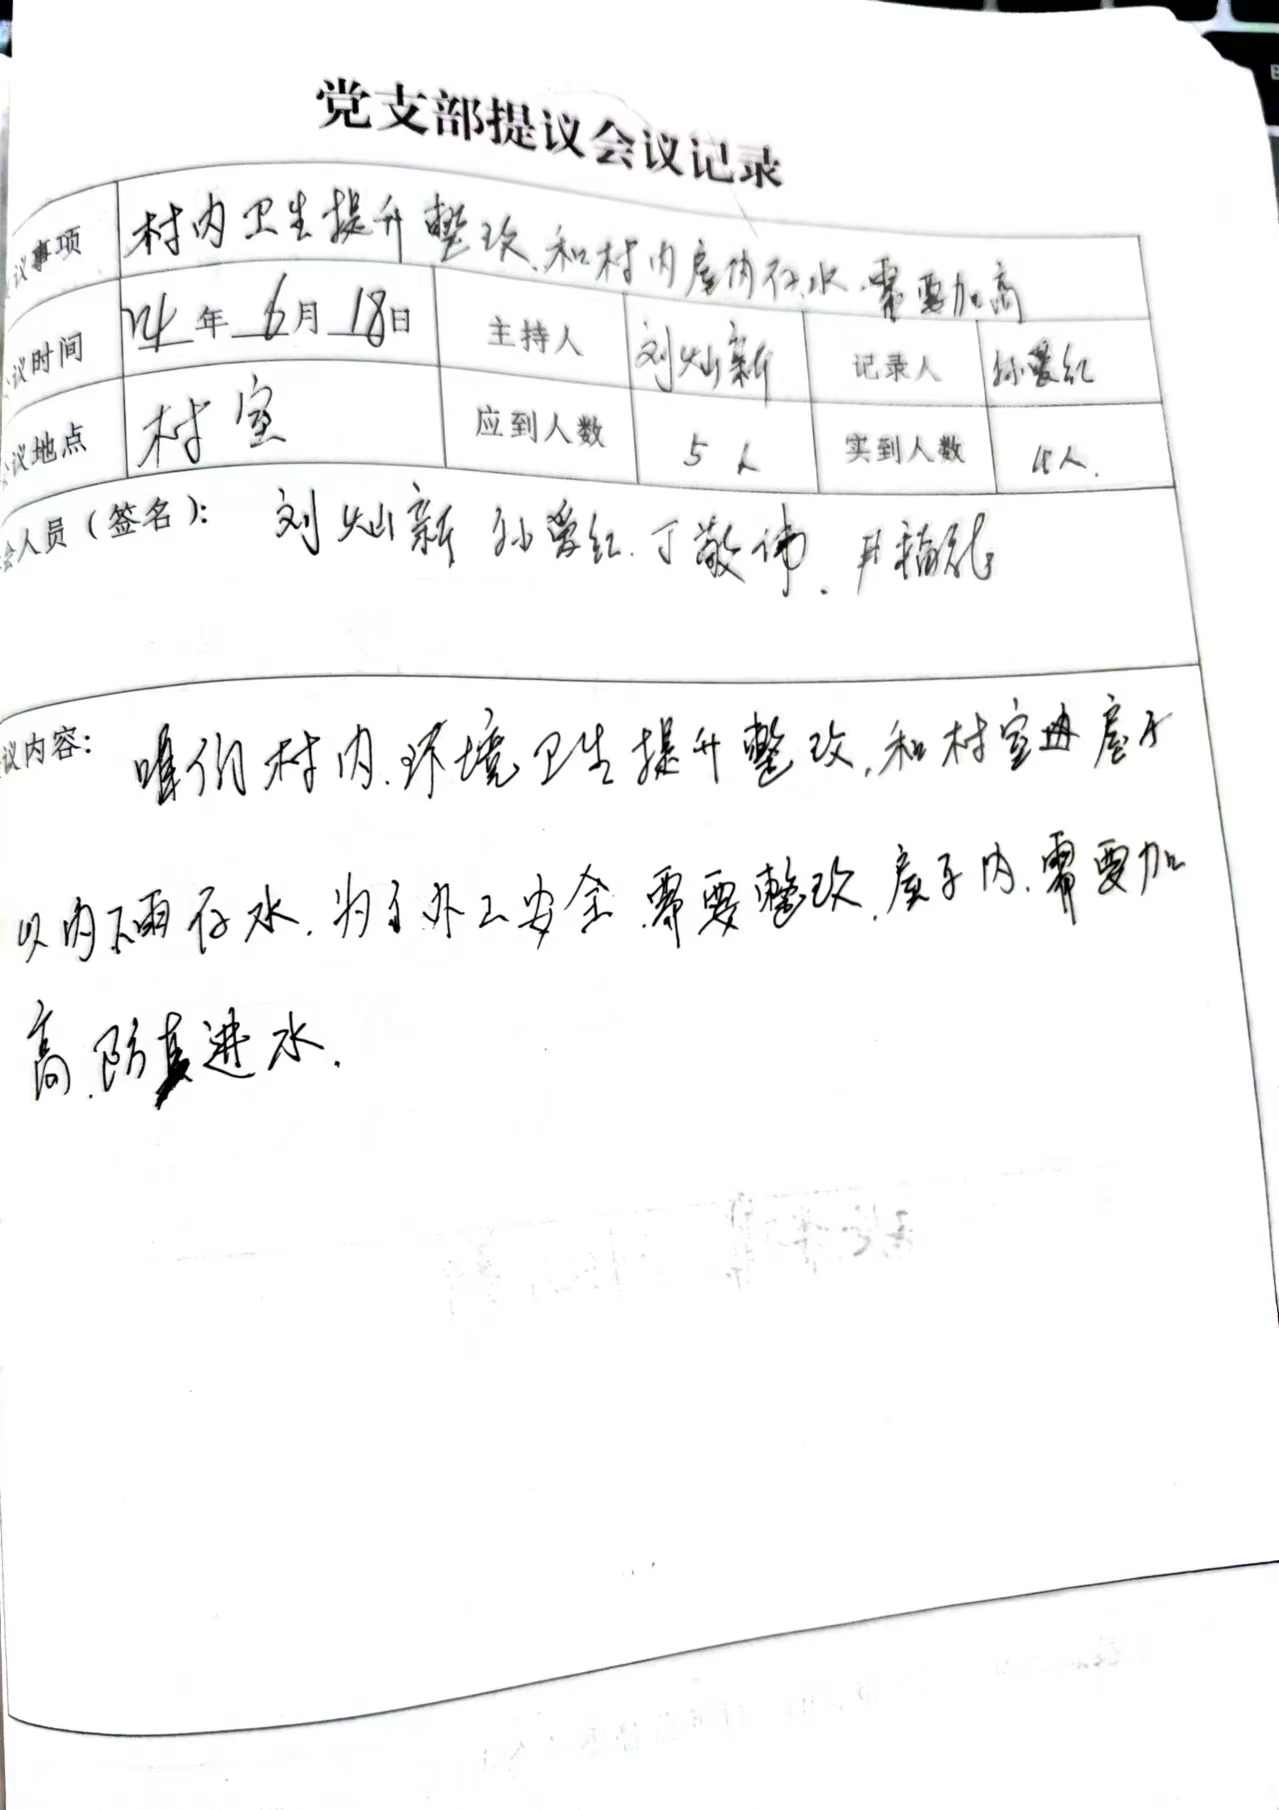 党支部提议会议记录
议事项 村内卫生提升整改、和村内屋内存水、需要加高
议时间 24年 6月 18日 主持人 刘灿新 记录人 孙爱红
议地点 村室 应到人数 5人 实到人数 4人.
会人员（签名）： 刘灿新 孙爱红. 丁敬伟.
议内容： 咱们村内.环境卫生提升整改,和村室进屋子
以内下雨存水.为了办工安全.需要整改.屋子内.需要加
高.防其进水.